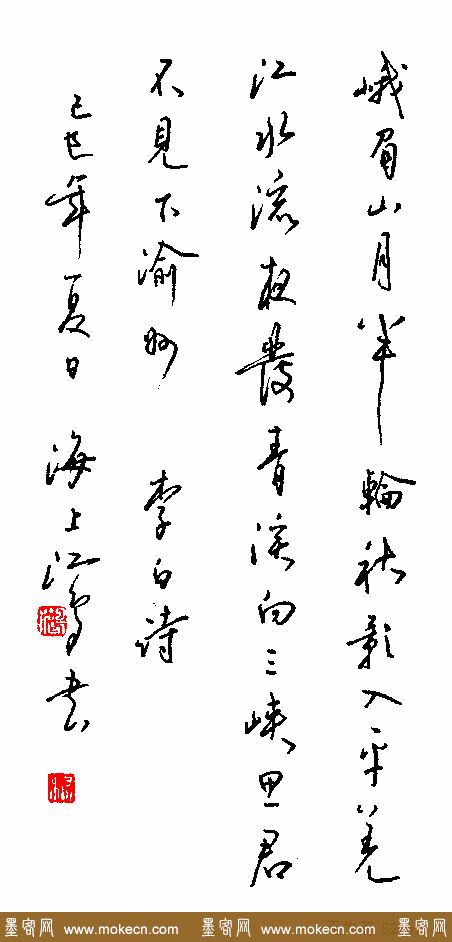 峨眉山月半輪秋影入平羌
江水流夜發青溪向三峽思君
不見下渝州 李白詩
己巳年夏日 海上 书
墨客网 www.mokecn.com 墨客网 www.mokecn.com 墨客网